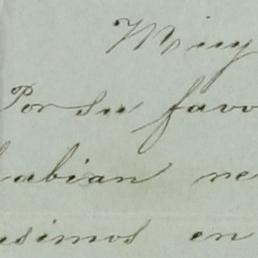 Muy
Por su favo
habian re
usimos en